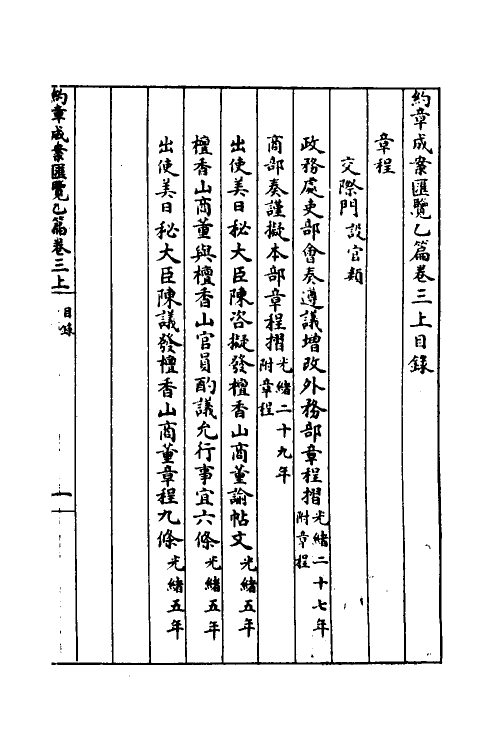 約章成案匯覽乙篇卷三上目錄
章程
交際門設官類
政務處吏部會奏遵議增改外務部章程摺光緒二十七年附章程
商部奏謹擬本部章程摺光緒二十九年附章程
出使美日秘大臣陳咨擬發檀香山商董諭帖文光緒五年
檀香山商董與檀香山官員酌議允行事宜六條光緒五年
出使美日秘大臣陳議發檀香山商董章程九條光緒五年
約章成案匯覽乙篇卷三上 目錄 一